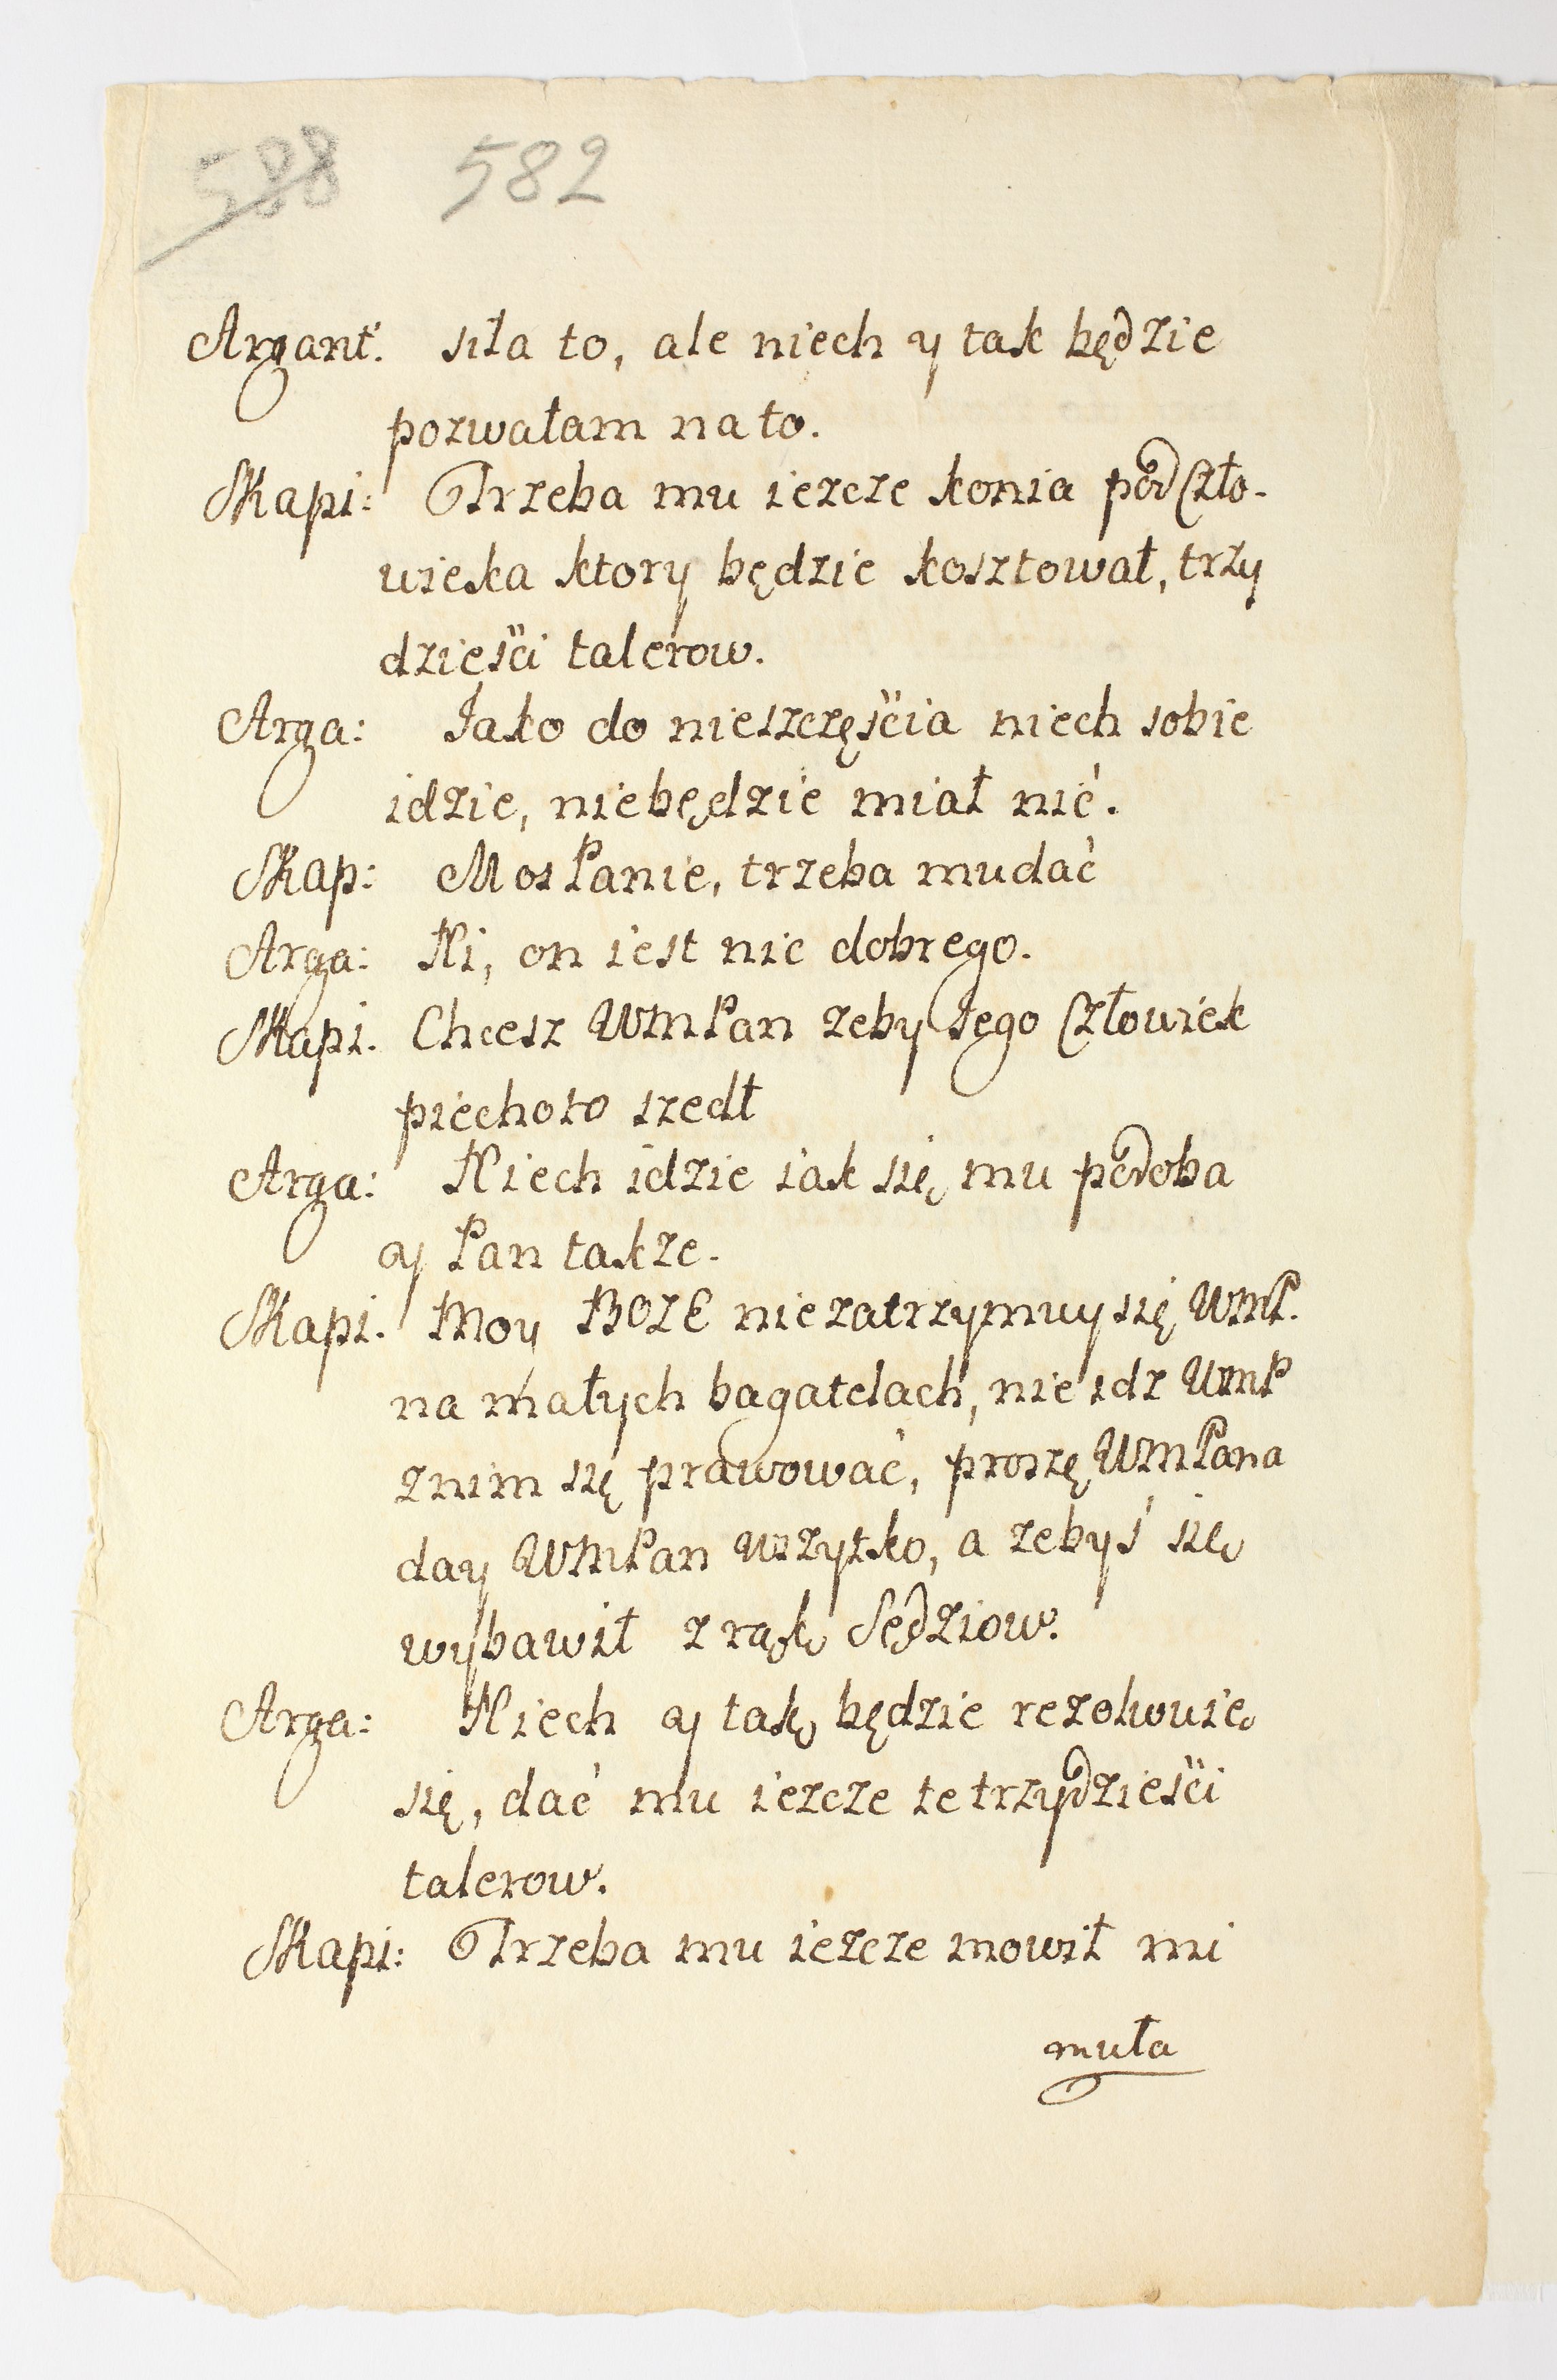 588 582
Argant. siła to, ale niech y tak będzie
pozwałam na to.
Skapi: Trzeba mu iezcze konia pod Czło-
wieka ktory będzie kosztował, trzy
dzieści talerow.
Arga: Jako do nieszczęścia niech sobie
idzie, niebędzie miał nić.
Skap: Mos Panie, trzeba mudać
Arga: Ni, on iest nic dobrego.
Skapi. Chcesz WMPan zeby Jego Człowiek
piechoto szedł
Arga: Niech idzie iak się mu podoba
y Pan takze.
Skapi. Moy BOZE niezatrzymuy się WMP.
na małych bagatelach, nie idz WMP
znim się prawować, proszę WMPana
day WMPan wszytko, a zebyś się
wybawił z rąk Sędziow.
Arga: Niech y tak będzie rezolwuię
się, dać mu iezcze te trzydzieści
talerow.
Skapi: Trzeba mu iezcze mowił mi
muła